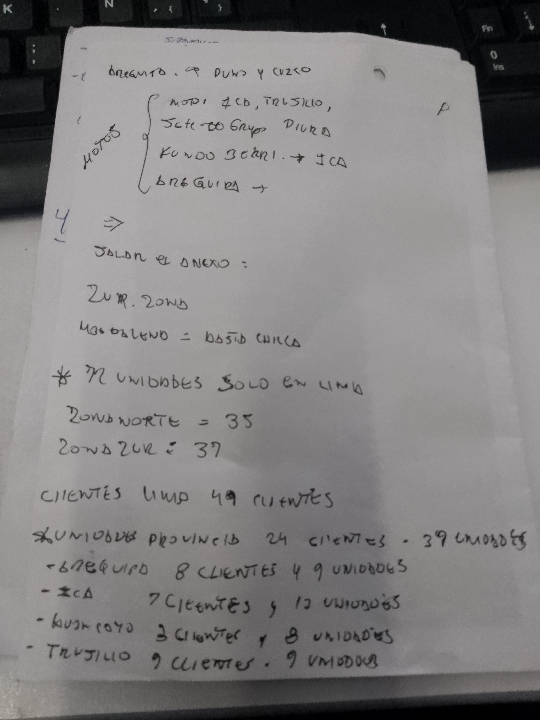 - AREQUIPA. → PUNO Y CUZCO
MOTOS
MOTO: ICA, TRUJILLO,
PIURA
FUNDO → ICA
AREQUIPA →
4 ⇒
JALAR EL ANEXO =
ZUR. ZONA
MAGDALENA = HASTA CHILCA
* 72 UNIDADES SOLO EN LIMA
ZONA NORTE = 35
ZONA ZUR = 37
CLIENTES LIMA 49 CLIENTES
* UNIDADES PROVINCIA 24 CLIENTES - 39 UNIDADES
- AREQUIPA 8 CLIENTES Y 9 UNIDADES
- ICA 7 CLIENTES Y UNIDADES
- HUANCAYO 3 CLIENTES Y 8 UNIDADES
- TRUJILLO 9 CLIENTES - 9 UNIDADES